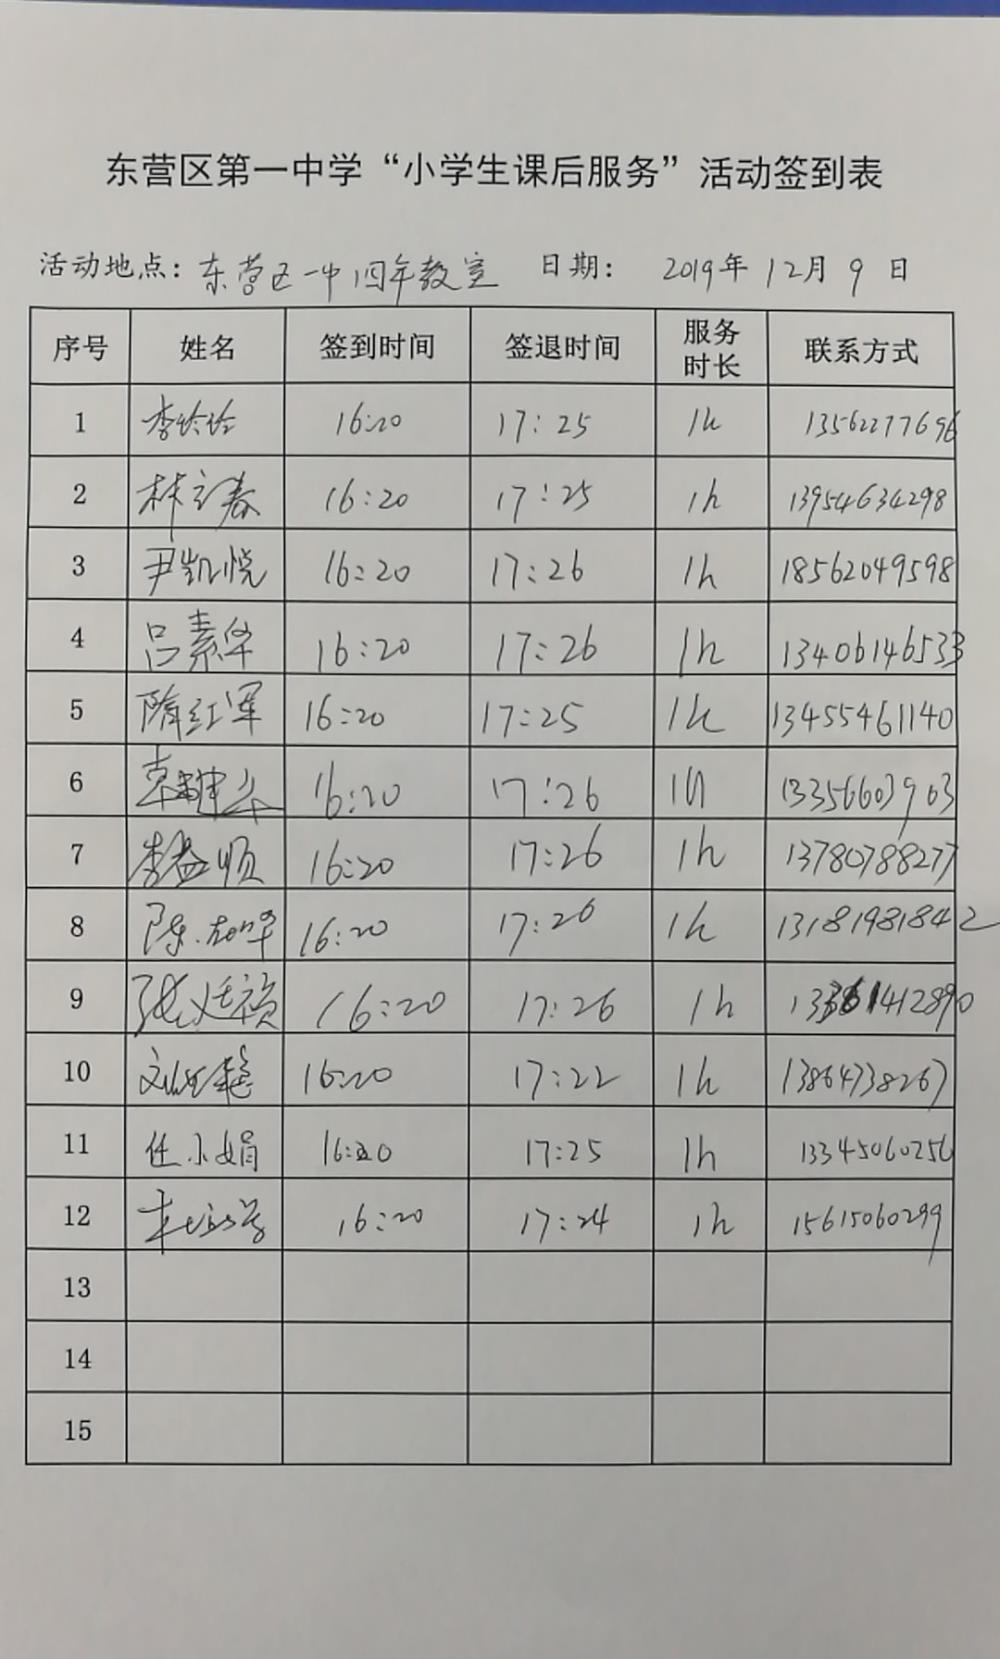 东营区第一中学“小学生课后服务”活动签到表
活动地点：东营区一中四年教室 日期： 2019年 12月 9 日
序号 姓名 签到时间 签退时间 服务时长 联系方式
1 李玲玲 16:20 17:25 1h 13562277696
2 林立春 16:20 17:25 1h 13954634298
3 尹凯悦 16:20 17:26 1h 18562049598
4 吕素华 16:20 17:26 1h 13406146533
5 隋红军 16:20 17:25 1h 13455461140
6 16:20 17:26 1h 13356603903
7 李益顺 16:20 17:26 1h 13780788277
8 16:20 17:26 1h 13181981842
9 张廷祯 16:20 17:26 1h 13361412890
10 16:20 17:22 1h 13864738267
11 任小娟 16:20 17:25 1h 13345060256
12 16:20 17:24 1h 15615060299
13
14
15